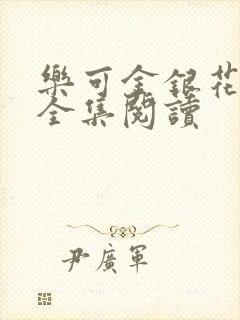 樂可金銀花
全集閱讀
尹廣軍